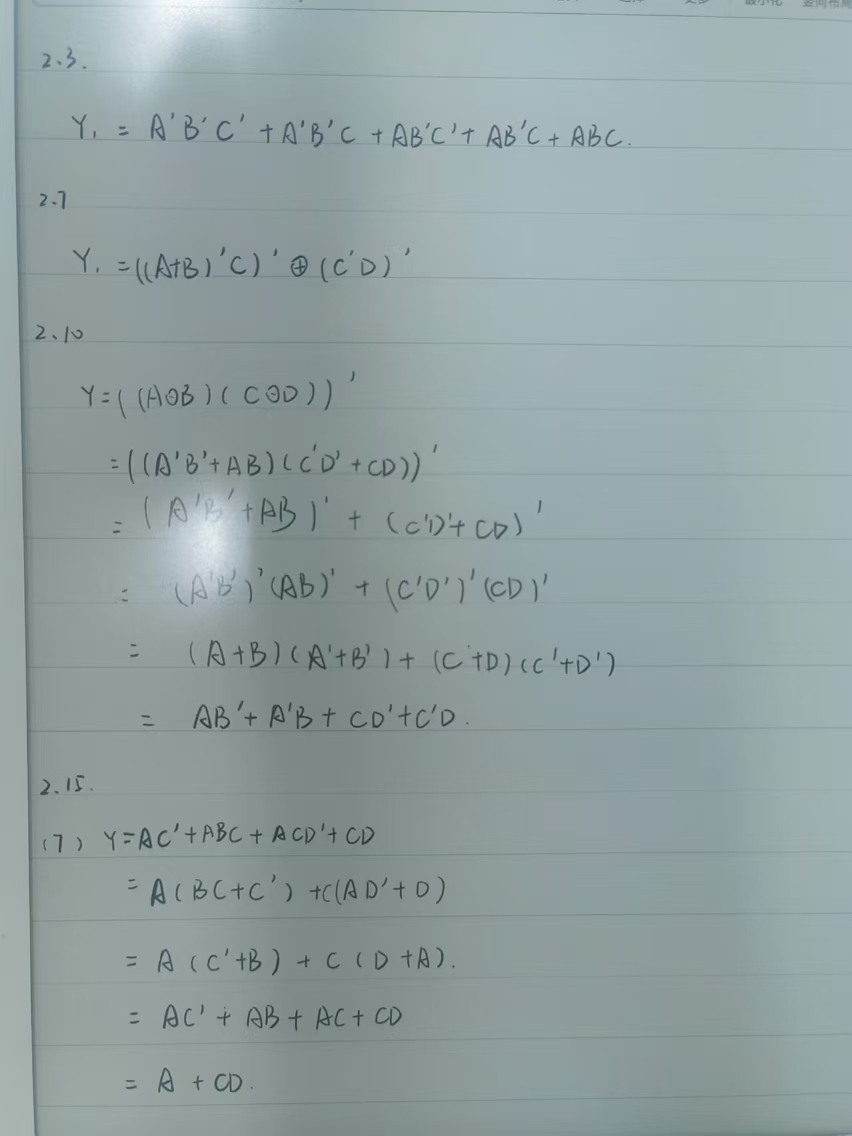 2.3.
Y₁ = A'B'C' + A'B'C + AB'C' + AB'C + ABC.
2.7
Y₁ = ((A+B)'C)' ⊕ (C'D)'
2.10
Y = ((A⊙B)(C⊙D))'
= ((A'B'+AB)(C'D'+CD))'
= (A'B'+AB)' + (C'D'+CD)'
= (A'B')'(AB)' + (C'D')'(CD)'
= (A+B)(A'+B') + (C+D)(C'+D')
= AB'+ A'B + CD'+C'D.
2.15.
(7) Y=AC'+ABC+ACD'+CD
= A(BC+C') +C(AD'+D)
= A(C'+B) + C(D+A).
= AC' + AB + AC + CD
= A + CD.